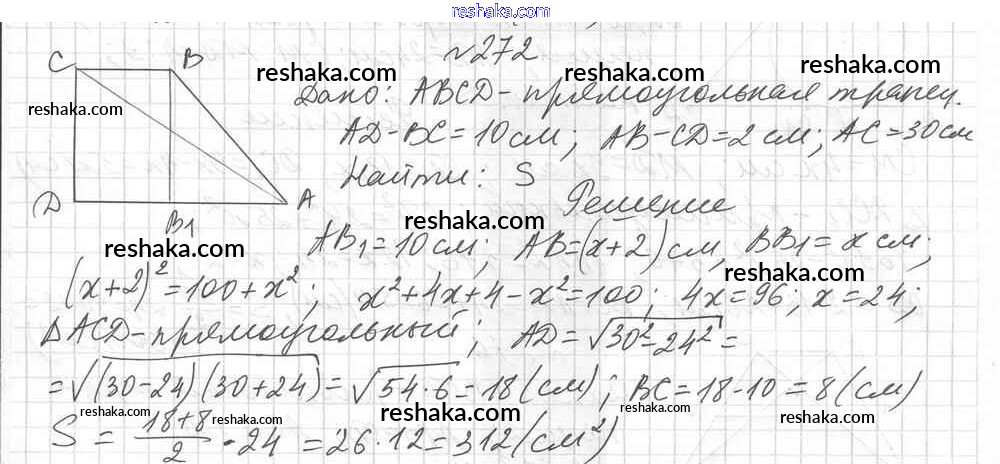 reshaka.com
№272
C B reshaka.com reshaka.com
reshaka.com Дано: ABCD - прямоугольная трапец.
AD-BC=10см; AB-CD=2см; AC=30см
reshaka.com reshaka.com
Найти: S
D B1 A reshaka.com Решение
reshaka.com AB1=10см; AB=(x+2)см, BB1=x см;
reshaka.com
(x+2)²=100+x²; x²+4x+4-x²=100; 4x=96; x=24;
ΔACD-прямоугольный; AD=√30²-24²=
reshaka.com
=√(30-24)(30+24)=√54·6=18(см); BC=18-10=8(см)
reshaka.com reshaka.com reshaka.com reshaka.com reshaka.com
S=18+8/2·24=26·12=312(см²)